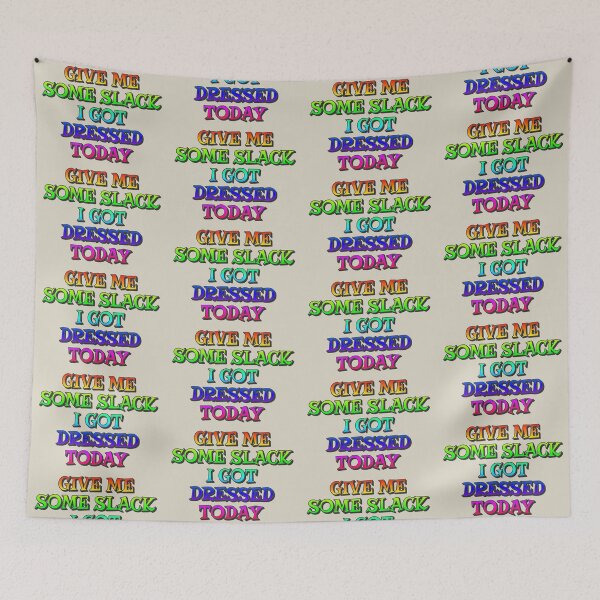 GIVE ME
SOME SLACK
I GOT
DRESSED
TODAY
GIVE ME
SOME SLACK
I GOT
DRESSED
TODAY
GIVE ME
SOME SLACK
I GOT
DRESSED
TODAY
GIVE ME
SOME SLACK
I GOT
DRESSED
TODAY
GIVE ME
SOME SLACK
I GOT
I GOT
DRESSED
TODAY
GIVE ME
SOME SLACK
I GOT
DRESSED
TODAY
GIVE ME
SOME SLACK
I GOT
DRESSED
TODAY
GIVE ME
SOME SLACK
I GOT
DRESSED
TODAY
GIVE ME
SOME SLACK
I GOT
DRESSED
TODAY
GIVE ME
SOME SLACK
I GOT
DRESSED
TODAY
GIVE ME
SOME SLACK
I GOT
DRESSED
TODAY
GIVE ME
SOME SLACK
I GOT
DRESSED
TODAY
GIVE ME
SOME SLACK
I GOT
DRESSED
TODAY
GIVE ME
SOME SLACK
I GOT
I GOT
DRESSED
TODAY
GIVE ME
SOME SLACK
I GOT
DRESSED
TODAY
GIVE ME
SOME SLACK
I GOT
DRESSED
TODAY
GIVE ME
SOME SLACK
I GOT
DRESSED
TODAY
GIVE ME
SOME SLACK
I GOT
DRESSED
TODAY